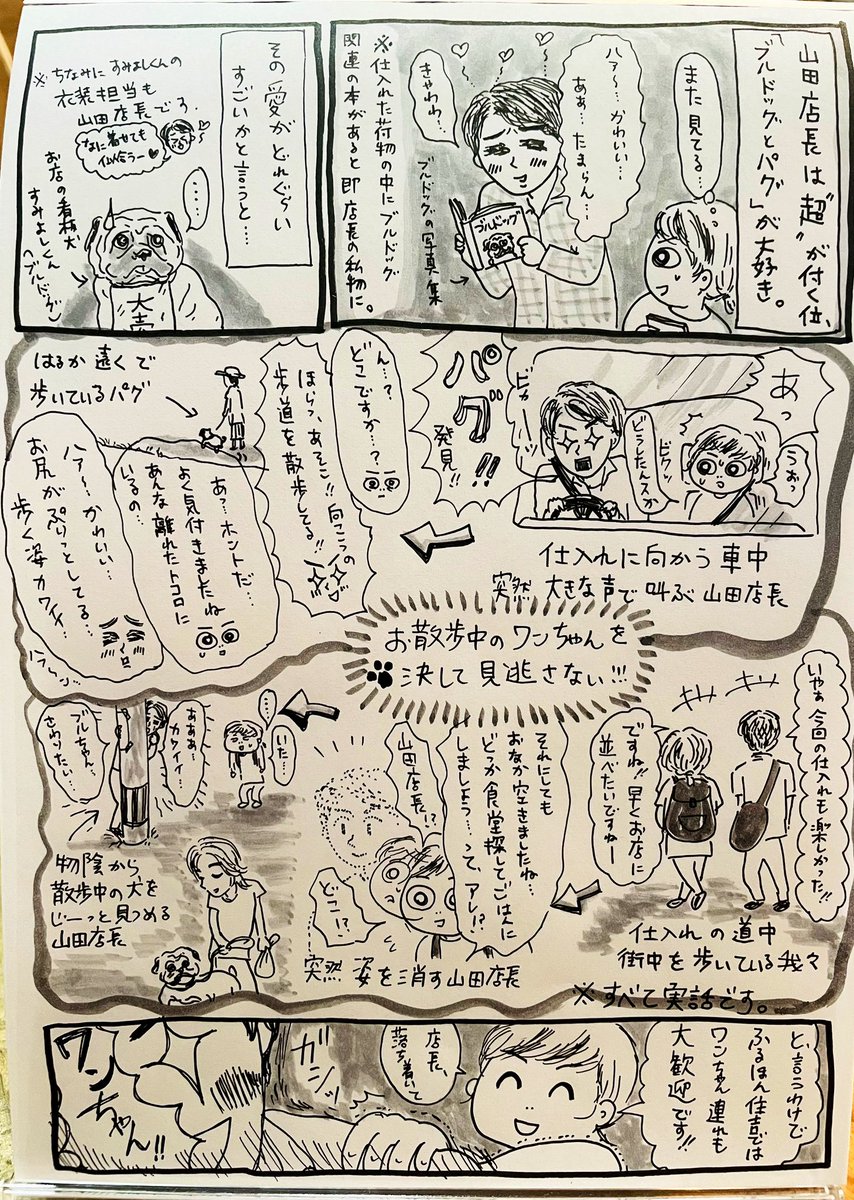 山田店長は“超”が付く位、
「ブルドッグとパグ」が大好き。
また見てる…
ハァ〜…かわいい…
あぁ…たまらん…
きゃわわ…
ブルドッグ
ブルドッグの写真集
※仕入れた荷物の中にブルドッグ
関連の本があると即店長の私物に。
その愛がどれぐらい
すごいかと言うと…
※ちなみにすみよしくんの
衣装担当も
山田店長です。
なに着せても
似合うー
・・・
お店の看板犬
すみよしくん
(ブルドッグ)
大売
あっ
うおっ
ビクッ
どうしたんスか
ビカッ
パグ!!
発見!!
仕入れに向かう車中
突然大きな声で叫ぶ山田店長
ん…?
どこですか…?
ほらっ、あそこ!!向こうの
歩道を散歩してる!!
はるか遠くで
歩いているパグ
あっ…ホントだ…
よく気付きましたね
あんな離れたトコロに
いるの…
ハァ〜…かわいい…
お尻がぷりっとしてる…
歩く姿カワイイ…
ハァ〜ン
お散歩中のワンちゃんを
決して見逃さない!!!
いやぁ今回の仕入れも楽しかった!!
ですね!!早くお店に
並べたいですねー
仕入れの道中
街中を歩いている我々
※すべて実話です。
それにしても
おなか空きましたね…
どっか食堂探してごはんに
しましょう…って、アレ!?
山田店長!?
どこ!?
突然姿を消す山田店長
・・・
いた…
あああ…
カワイイ…
ブルちゃん…
さわりたい…
物陰から
散歩中の犬を
じーっと見つめる
山田店長
と、言うわけで
ふるほん住吉では
ワンちゃん連れも
大歓迎です!!
店長、
落ち着いて
ガシッ
ワンちゃん!!